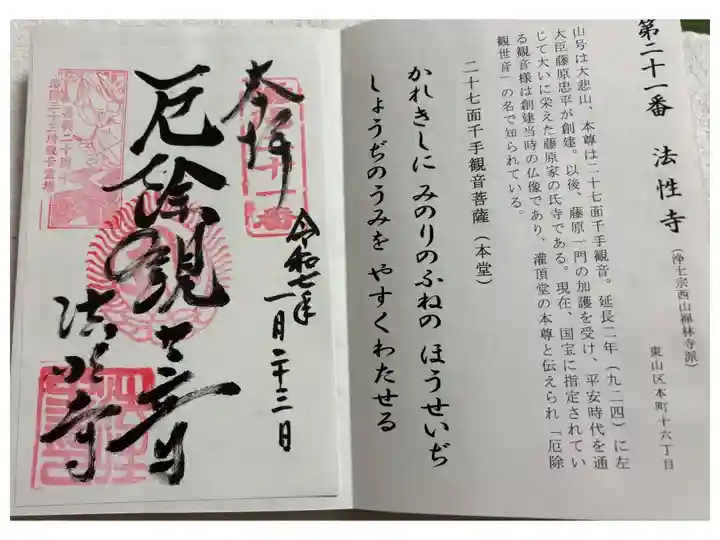 第二十一番 法性寺
(浄土宗西山禅林寺派)
東山区本町十六丁目
山号は大悲山、本尊は二十七面千手観音。延長二年(九二四)に左
大臣藤原忠平が創建。以後、藤原一門の加護を受け、平安時代を通
じて大いに栄えた藤原家の氏寺である。現在、国宝に指定されてい
る観音様は創建当時の仏像であり、灌頂堂の本尊と伝えられ「厄除
観世音」の名で知られている。
二十七面千手観音菩薩(本堂)
かれきしに みのりのふねの ほうせいぢ
しょうぢのうみを やすくわたせる
奉拝
令和七年
一月二十三日
厄除観世音
法性寺
第二十一番
洛陽三十三所観音霊場